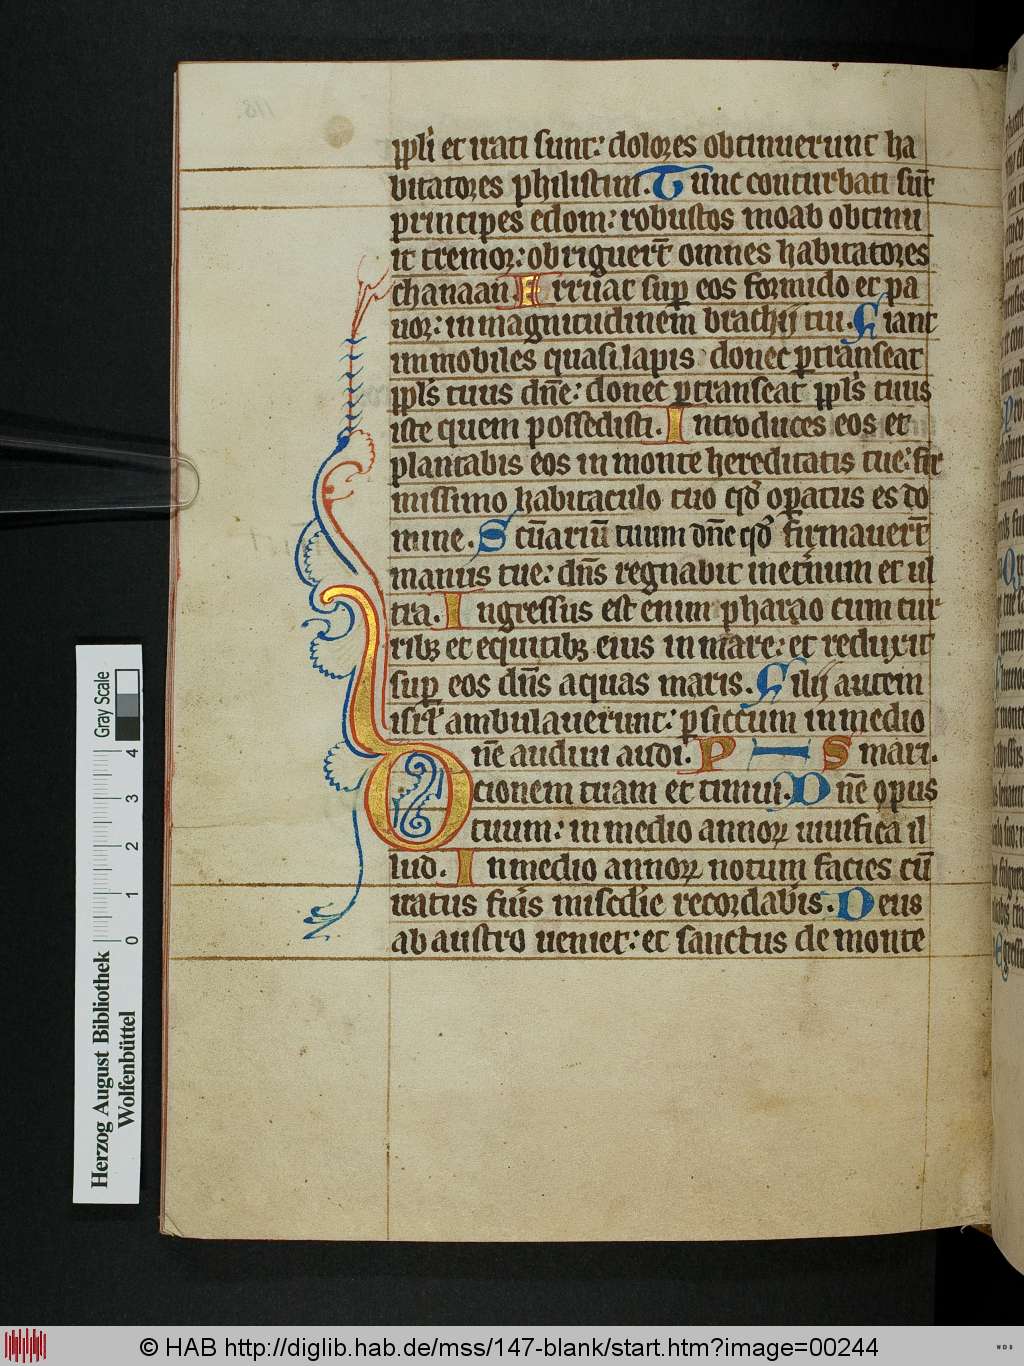 ppl'i et irati sunt: dolores obtinuerunt ha
bitatores philistiim. Tunc conturbati sūt
principes edom: robustos moab obtinu
it tremor: obriguer̄t omnes habitatores
chanaan. Irruat sup̄ eos formido et pa
uor: in magnitudinem brachij tui. Fiant
immobiles quasi lapis donec ꝑtranseat
ppl's tuus dn̄e: donec ꝑtranseat ppl's tuus
iste quem possedisti. Introduces eos et
plantabis eos in monte hereditatis tue: fir
missimo habitaculo tuo qd' oꝑatus es do
mine. Sc̄uariū tuum dn̄e qd' firmauer̄t
manus tue: dn̄s regnabit inet'num et ul
tra. Ingressus est enim pharao cum cur
ribꝫ et equitibꝫ eius in mare: et reduxit
sup̄ eos dn̄s aquas maris. Filij autem
isrl' ambulauerunt: ꝑ siccum in medio
D ne audiui audi. P S mari.
tionem tuam et timui. Dn̄e opus
tuum: in medio annoꝝ uiuifica il
lud. In medio annoꝝ notum facies cū
iratus fui's mis'c'die recordabis. Deus
ab austro ueniet: et sanctus de monte
Herzog August Bibliothek
Wolfenbüttel
0 1 2 3 4
Gray Scale
© HAB http://diglib.hab.de/mss/147-blank/start.htm?image=00244